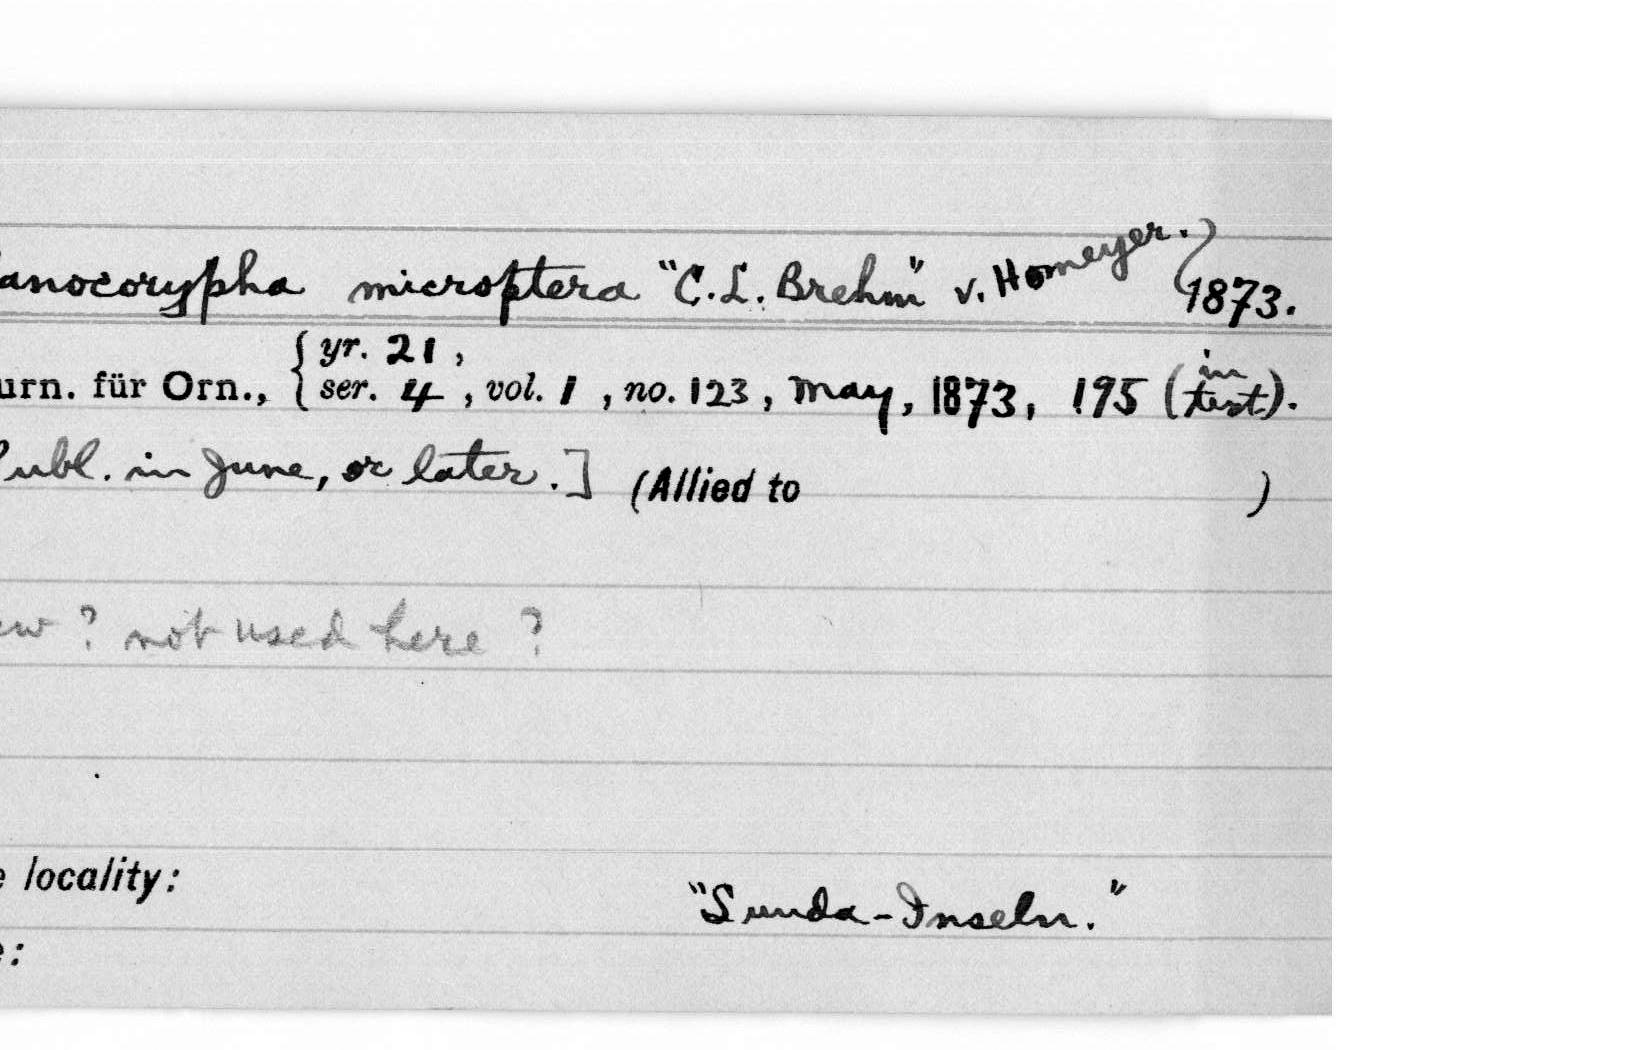 anocorypha microptera "C.L. Brehm" v. Homeyer.) 1873.
urn. für Orn., { yr. 21, ser. 4, vol. 1, no. 123, May, 1873, 195 (in text).
Publ. in June, or later.] (Allied to )
ew? not used here?
e locality: "Sunda-Inseln."
e: